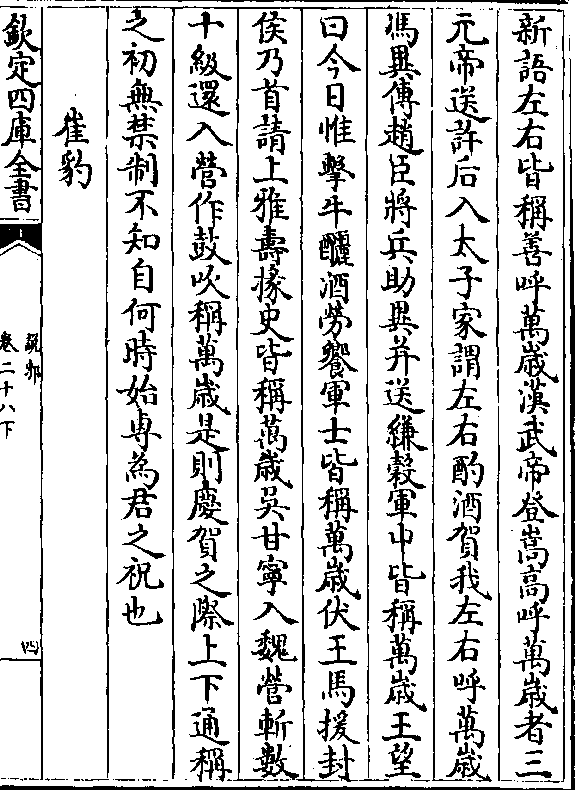 新語左右皆稱善呼萬歳漢武帝登嵩高呼萬歳者三
元帝送許后入太子家謂左右酌酒賀我左右呼萬歳
馮異傳趙臣將兵助異并送縑穀軍中皆稱萬歳王望
曰今日惟擊牛釃酒勞饗軍士皆稱萬歳伏王馬援封
侯乃首請上雅壽掾史皆稱萬歳吳甘寧入魏營斬數
十級還入營作鼓吹稱萬歳是則慶賀之際上下通稱
之初無禁制不知自何時始専為君之祝也
崔豹
欽定四庫全書
說郛
卷二十八下
四